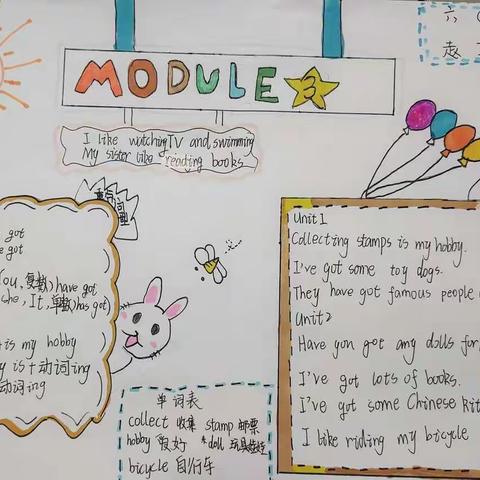 六
赵
MODULE 3
I like watching TV and swimming
My sister like reading books
重点词
got
e got
You, 复数) have got
She, It, 单数) has got)
is my hobby
y is + 动词ing
动词ing
Unit 1
Collecting stamps is my hobby.
I've got some toy dogs.
They have got famous people
Unit 2
Have you got any dolls for
I've got lots of books.
I've got some Chinese kit
I like riding my bicycle
单词表
collect 收集 stamp 邮票
hobby 爱好 *doll 玩具娃娃
bicycle 自行车